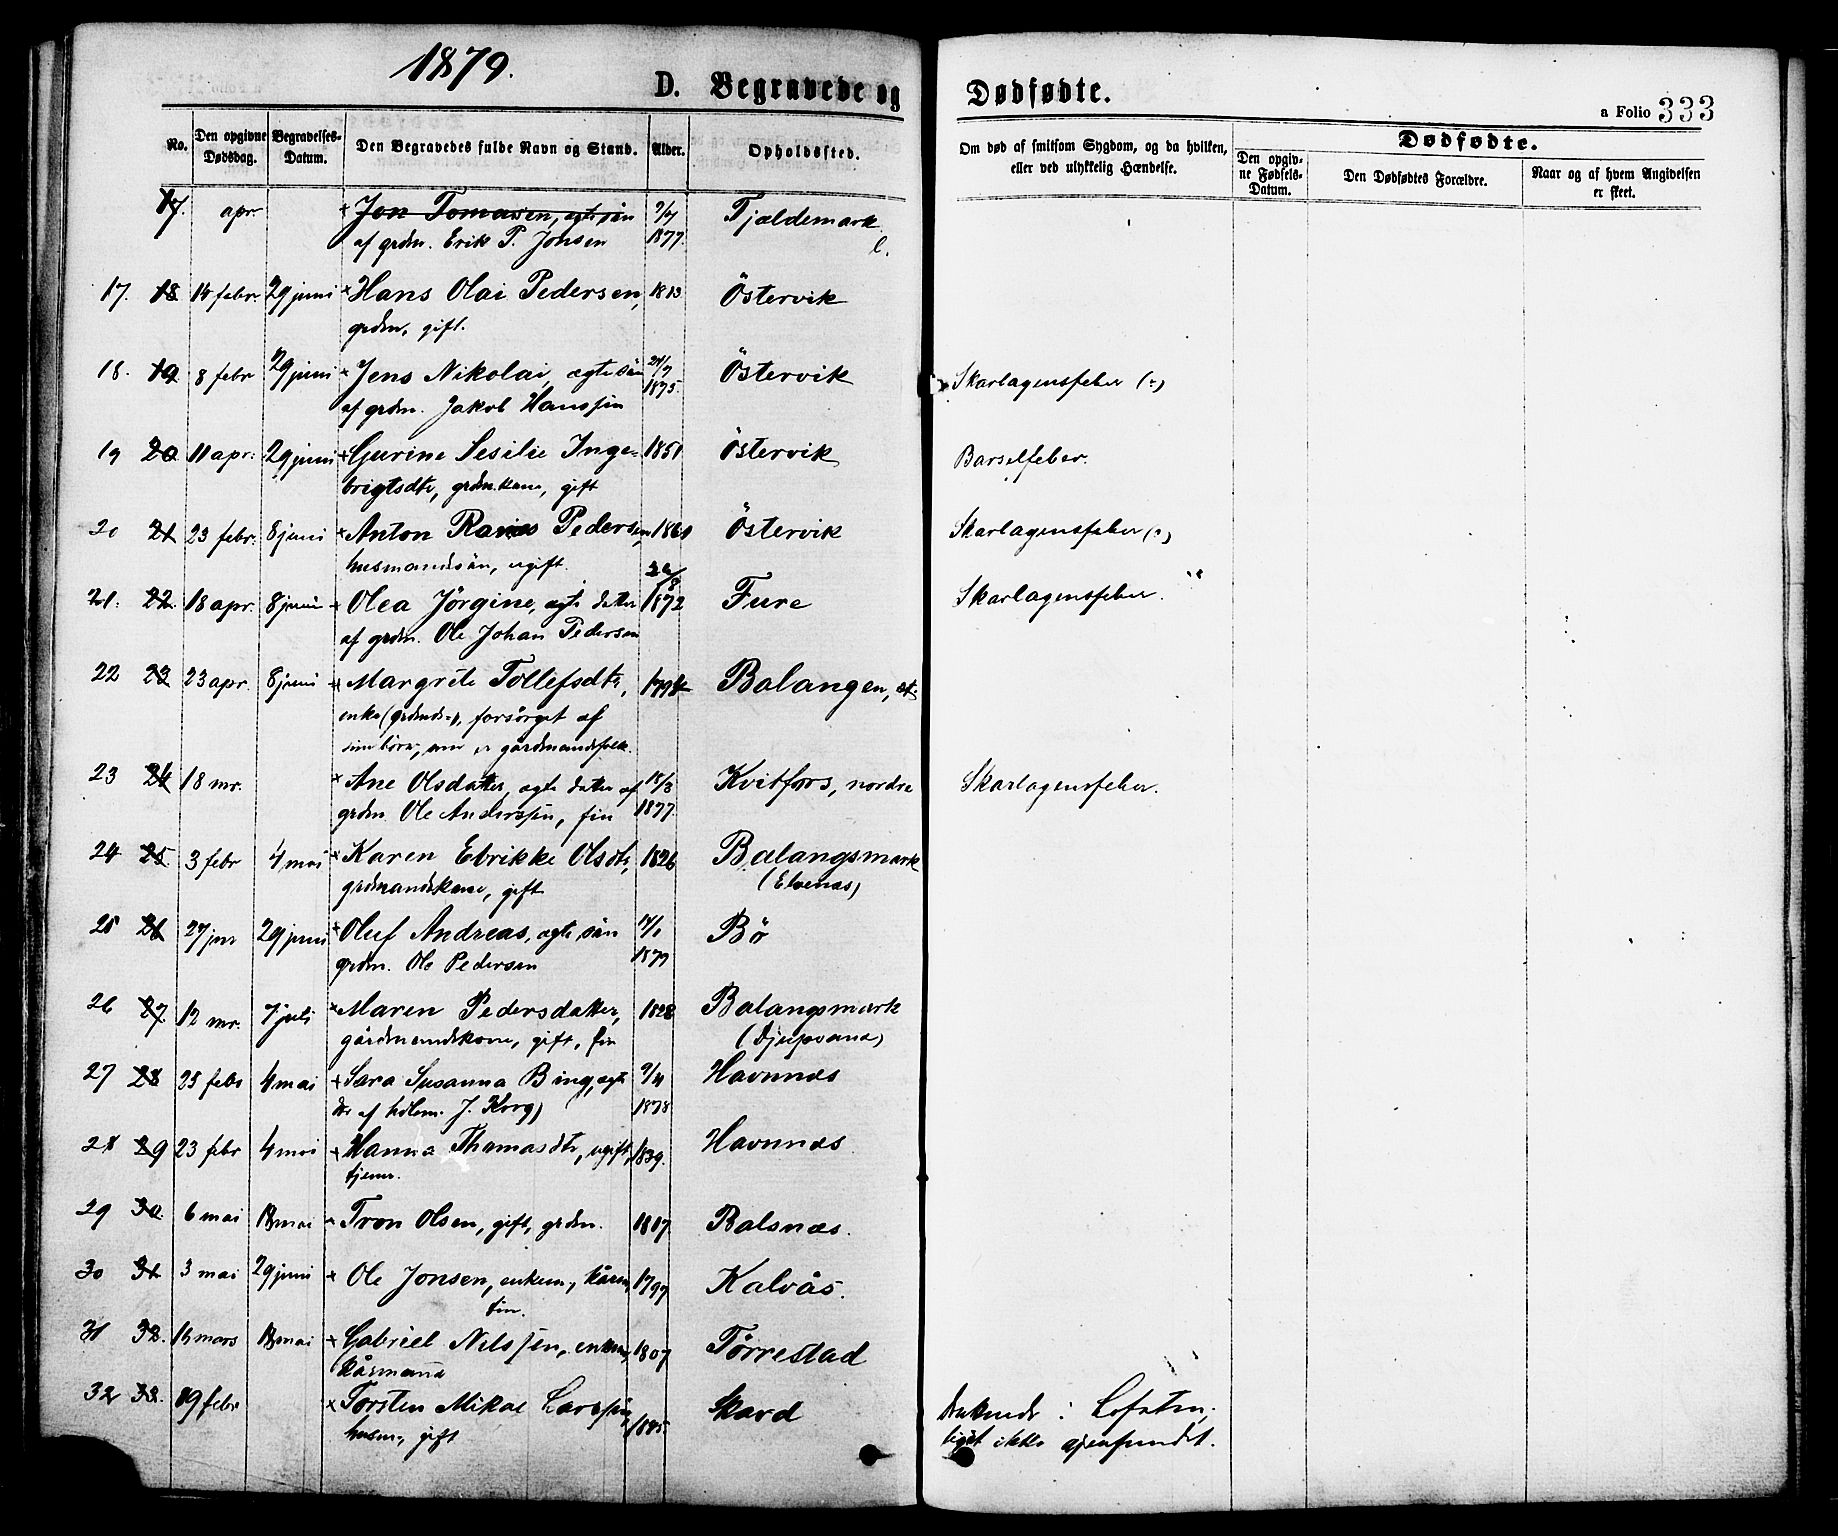 1879.
D. Begravede og Dødfødte.
a Folio 333
No. Den opgivne Dødsdag. Begravelses-Datum. Den Begravedes fulde Navn og Stand. Alder. Opholdssted. Om død af smitsom Sygdom, og da hvilken, eller ved ulykkelig Hændelse. Dødfødte.
Den opgivne Fødsels-Datum. Den Dødfødtes Forældre. Naar og af hvem Angivelsen er skeet.
17. apr. × Jon Tomasen, ægte sön 9/7 Tjældemark
af grdm. Erik P. Jonsen 1877. l.
17. 18 14 febr. 29 juni × Hans Olai Pedersen, 1813 Östervik
grdm, gift.
18. 19 8 febr 29 juni × Jens Nikolai, ægte sön 21/7 Östervik Skarlagensfeber (?)
af grdm. Jakob Hanssen 1875.
19 20 11 apr. 29 juni × Gurine Sesilie Inge= 1851 Östervik Barselfeber.
brigtsdtr, grdm.kone, gift
20 21 23 febr. 8 juni × Anton Pedersen 1861 Östervik Skarlagensfeber (?)
husmandssön, ugift.
21. 22. 18 apr. 8 juni × Olea Jörgine, ægte datter 26/8 1872 Fure Skarlagensfeber.
af grdm. Ole Johan Pedersen
22 23 23 apr. 8 juni × Margrete Tollefsdtr, Balangen,
enke, forsörget af
sine börn, som er gårdmandsfolk.
23 24 18 mr. × Ane Olsdatter, ægte datter af 18/3 Kvitfors, nordre Skarlagensfeber.
grdm. Ole Anderssen, fin 1877.
24 25 3 febr 4 mai × Karen Ebrikke Olsdtr, 1826 Balangsmark
grdmandskone, gift (Elvenæs)
25 26 27 jan 29 juni × Oluf Andreas, ægte sön 17/1 Bö
grdm. Ole Pedersen 1879
26 27. 12 mr. 7 juli × Maren Pedersdatter, 1828 Balangsmark
gårdmandskone, gift, fin (Djupvand)
27 28 25 febr 4 mai × Sara Susanna Bing, ægte 9/4 Havnnæs
dtr af hdlsm. J. Kors 1878
28 29 23 febr 4 mai × Hanna Thomasdtr, ugift, 1839. Havnnæs
tjener.
29 30 6 mai mai × Tron Olsen, gift, grdm. 1817 Balsnæs.
30 31 3 mai 29 juni × Ole Jonsen, enkem, kårm, 1797 Kalvås.
fin.
31 32. 16 mars mai × Gabriel Nilssen, enkem, 1807 Tørrestad
kårmand
32 33. 19 febr × Torsten Mikal Larssen, 1845. Skard Druknede i Lofoten,
husm, gift liget ikke gjenfundet.